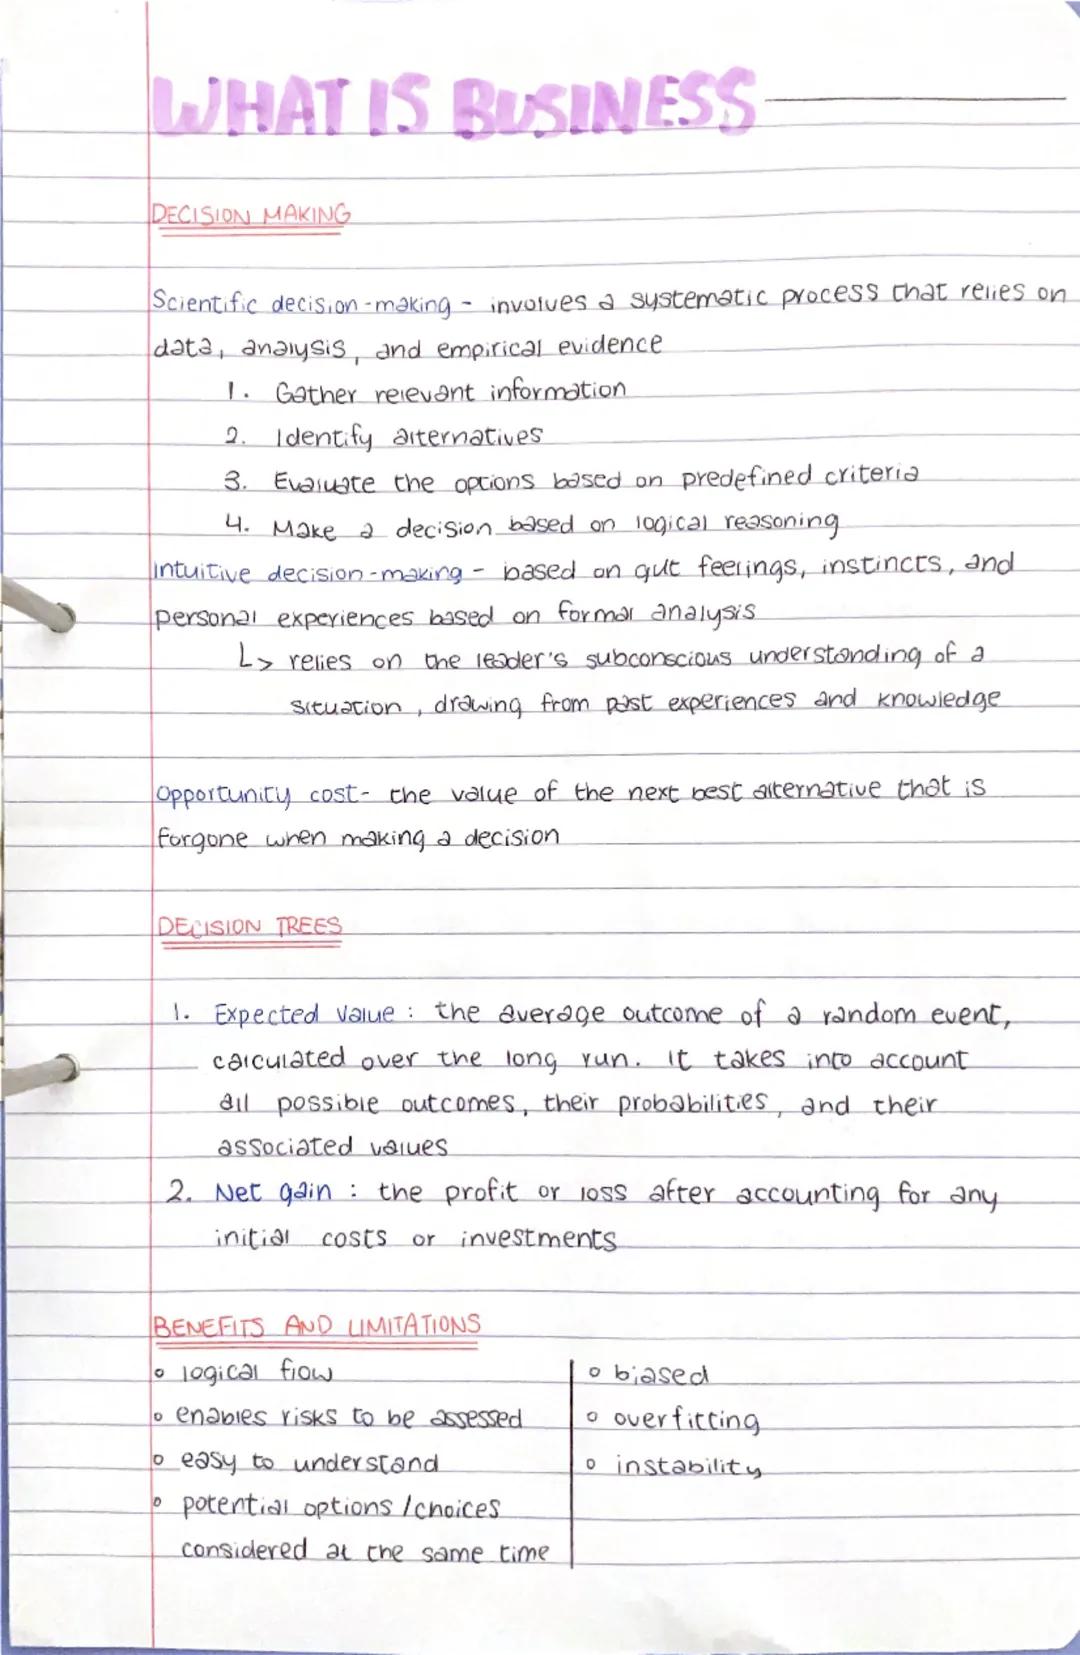 WHAT IS BUSINESS
DECISION MAKING
Scientific decision-making - involves a systematic process that relies on
data, analysis, and empirical evidence
1. Gather relevant information
2. Identify alternatives
3. Evaluate the options based on predefined criteria
4. Make a decision based on logical reasoning
Intuitive decision-making - based on gut feelings, instincts, and
personal experiences based on formal analysis
↳ relies on the leader's subconscious understanding of a
situation, drawing from past experiences and knowledge
Opportunity cost- the value of the next best alternative that is
forgone when making a decision
DECISION TREES
1. Expected value : the average outcome of a random event,
calculated over the long run. It takes into account
all possible outcomes, their probabilities, and their
associated values
2. Net gain : the profit or loss after accounting for any
initial costs or investments
BENEFITS AND LIMITATIONS
o logical flow
o enables risks to be assessed
o easy to understand
o potential options / choices
considered at the same time
o biased
o overfitting
o instability